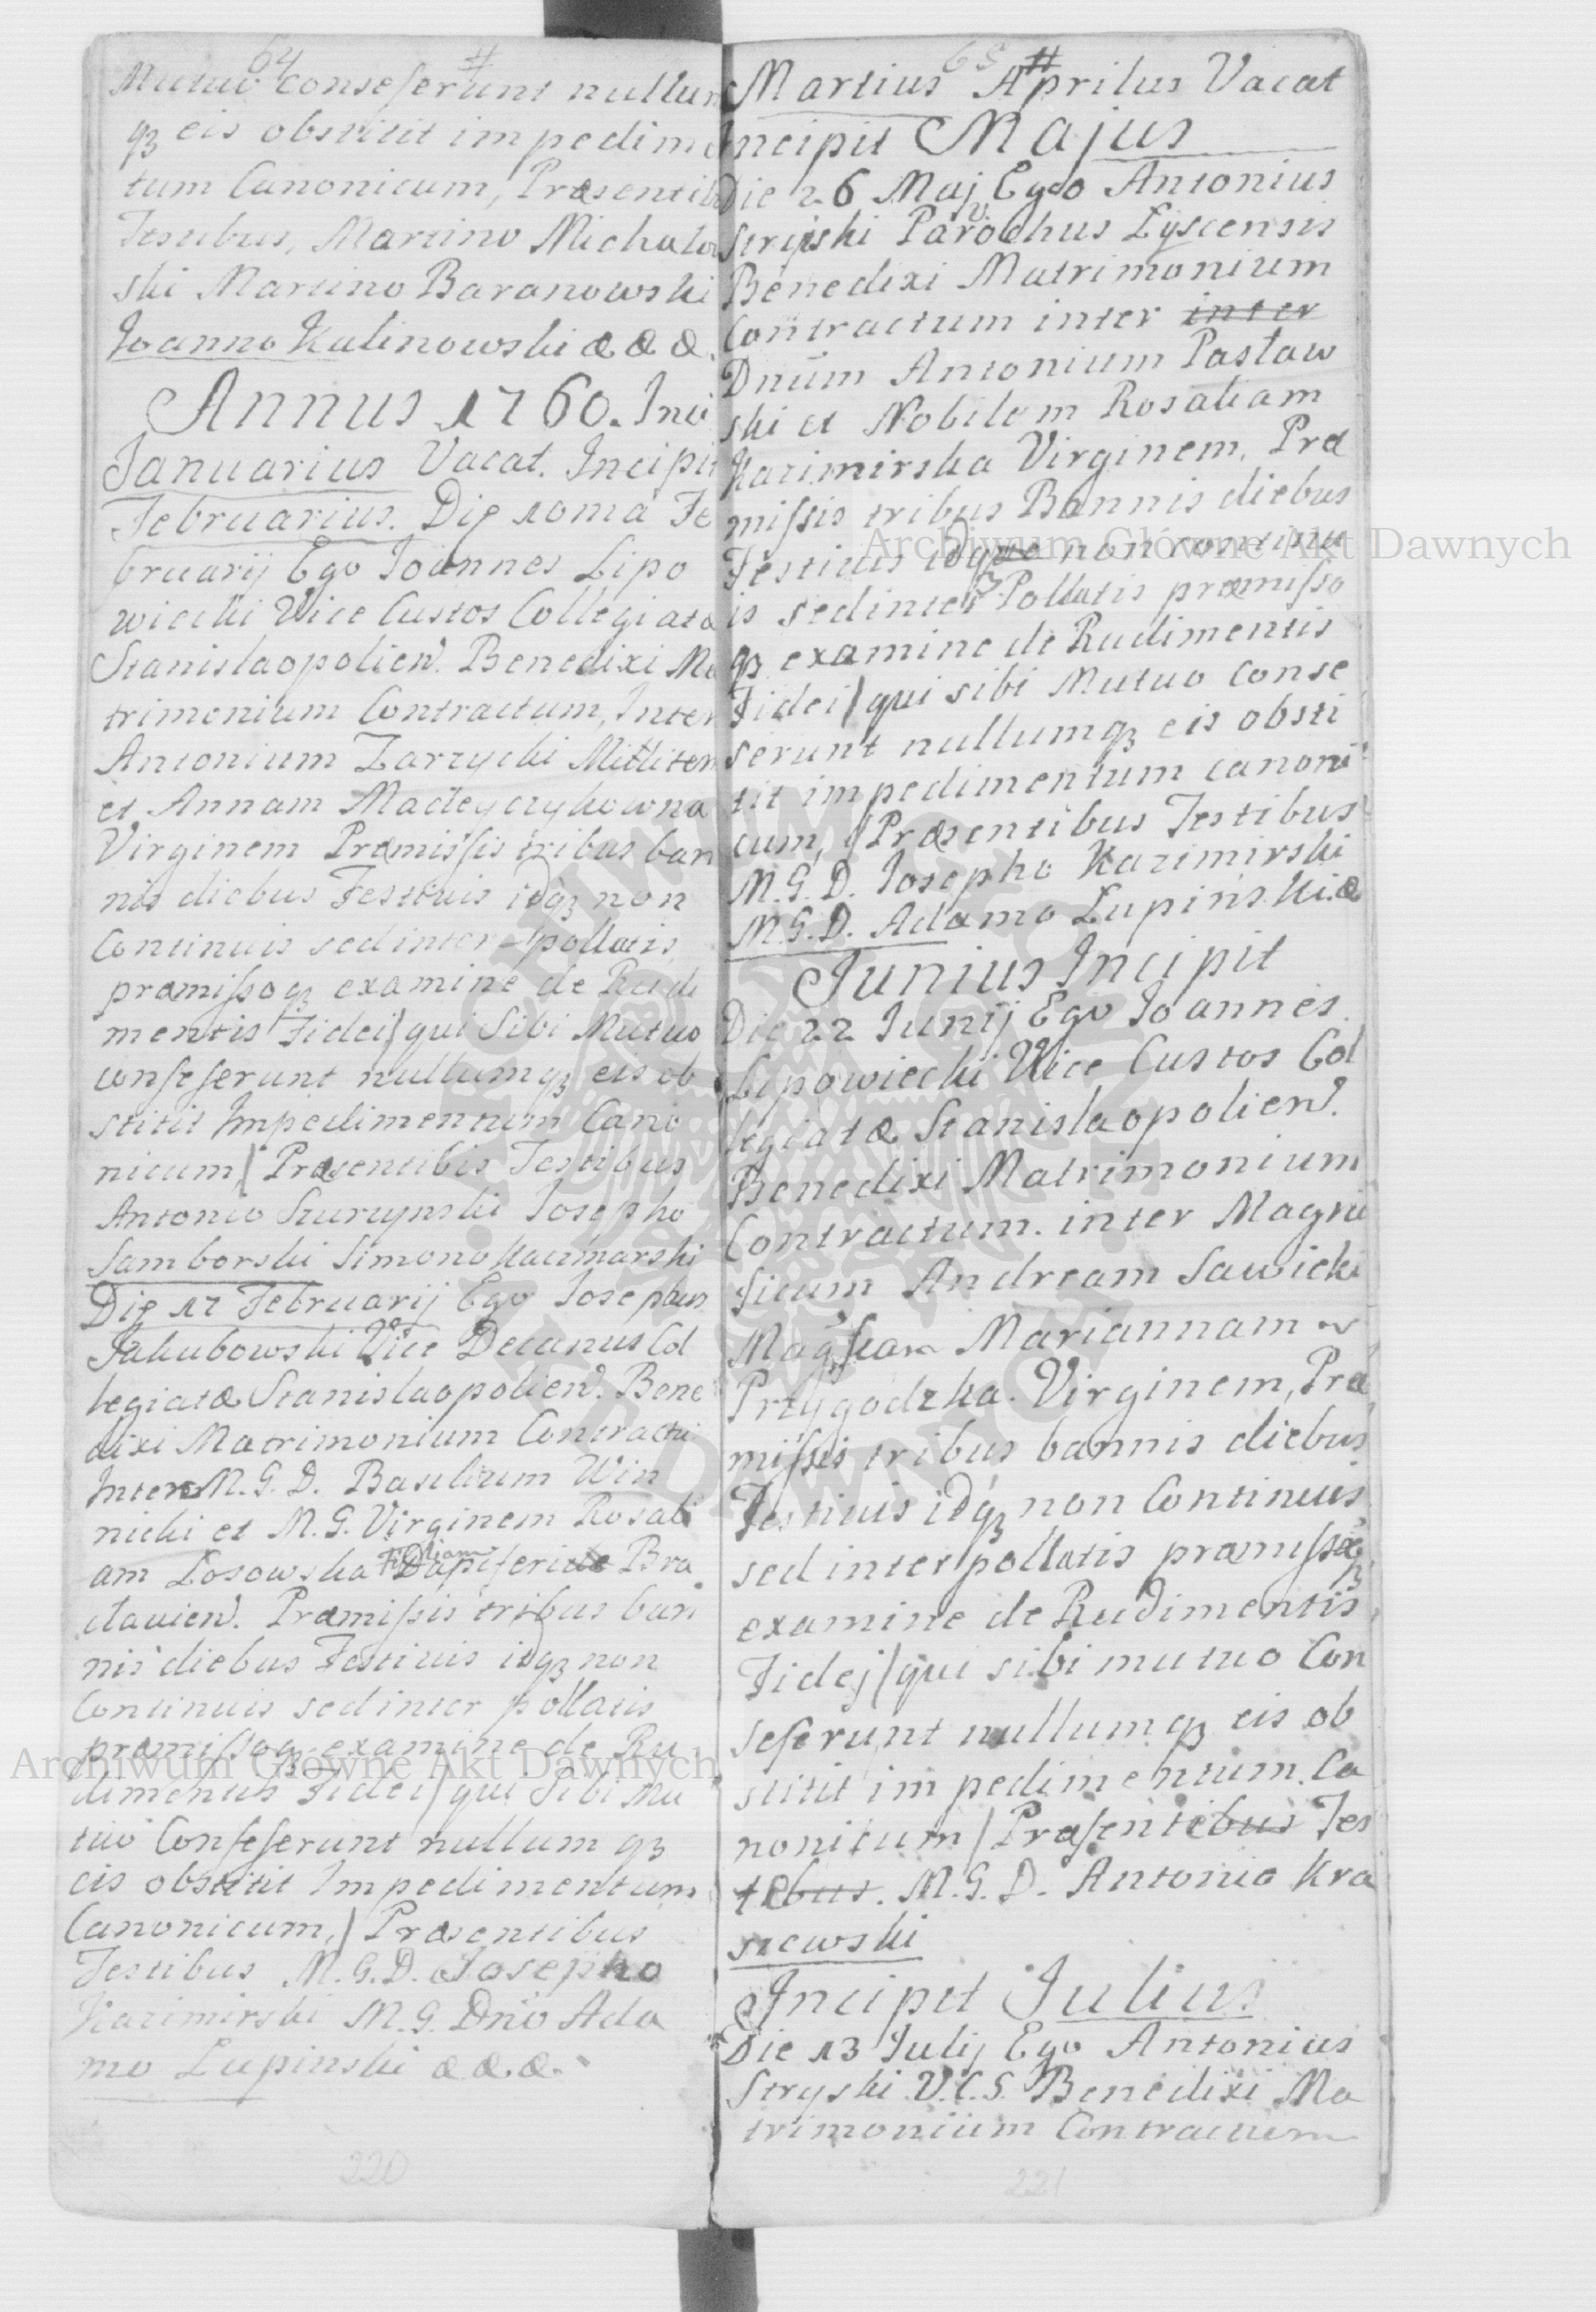 64 #
Mutuo conseserunt nullum
qz eis obstitit impedimen
tum Canonicum, Præsentib
Testibus, Martino Michalow
ski Martino Baranowski
Joanno Kalinowski & & &.
Annus 1760. Inci
Januarius Vacat. Incipit
Februarius. Die 10ma Fe
bruarij Ego Joannes Lipo
wiecki Vice Custos Collegiatæ
Stanislaopolien. Benedixi Ma
trimonium Contractum, Inter
Antonium Zarzycki Militem
et Annam Macieyczykowna
Virginem Præmissis tribus ban
nis diebus Festivis idqz non
Continuis sed inter pollatis
præmissoqz examine de Rudi
mentis Fidei/ qui Sibi Mutuo
conseserunt nullumqz eis ob
stitit Impedimentum Cano
nicum/ Præsentibis Testibus
Antonio Szurzynski Josepho
Samborski Simono Kaczmarski
Die 17 Februarij Ego Josephus
Jakubowski Vice Decanus Col
legiatæ Stanislaopolien. Bene
dixi Matrimonium Contractu
Inter M. G. D. Basilium Win
nicki et M. G. Virginem Rosali
am Losowska Filiam Dapiferi Bra
clavien. Præmissis tribus ban
nis diebus Festivis idqz non
Continuis sed inter pollatis
præmissoqz examine de Ru
dimentis Fidei/ qui Sibi Mu
tuo Conseserunt nullum qz
eis obstitit Impedimentum
Canonicum,/ Præsentibus
Testibus M. G. D. Josepho
Kazimirski M. G. Dno Ada
mo Lupinski & & &.
220
65 #
Martius Aprilus Vacat
Incipit Majus
Die 26 Maj Ego Antonius
Stryiski Parochus Lyscensis
Benedixi Matrimonium
Contractum inter inter
Dnum Antonium Pasław
ski et Nobilem Rosaliam
Kazimirska Virginem, Præ
missis tribus Bannis diebus
Festivis idque non continu
is sed inter Pollatis præmisso
qz examine de Rudimentis
Fidei/ qui sibi Mutuo conse
serunt nullumqz eis obsti
tit impedimentum canoni
cum,/ Præsentibus Testibus
M. G. D. Josepho Kazimirski
M. G. D. Adamo Lupinski. &
Junius Incipit
Die 22 Junij Ego Joannes
Lipowiecki Vice Custos Col
legiatæ Stanislaopolien.
Benedixi Matrimonium
Contractum. inter Magni
ficum Andream Sawicki
Magficam Mariannam
Przygodzka. Virginem, Præ
missis tribus bannis diebus
Festivis idqz non Continuis
sed inter pollatis præmissoqz
examine de Rudimentis
Fidej/ qui sibi mutuo Con
seserunt nullumqz eis ob
stitit impedimentum. Ca
nonicum/ Præsentebus Tes
tebus. M. G. D. Antonio Kra
szewski
Incipit Julius
Die 13 Julij Ego Antonius
Stryski V. C. S. Benedixi Ma
trimonium Contractum
221
Archiwum Główne Akt Dawnych
Archiwum Główne Akt Dawnych